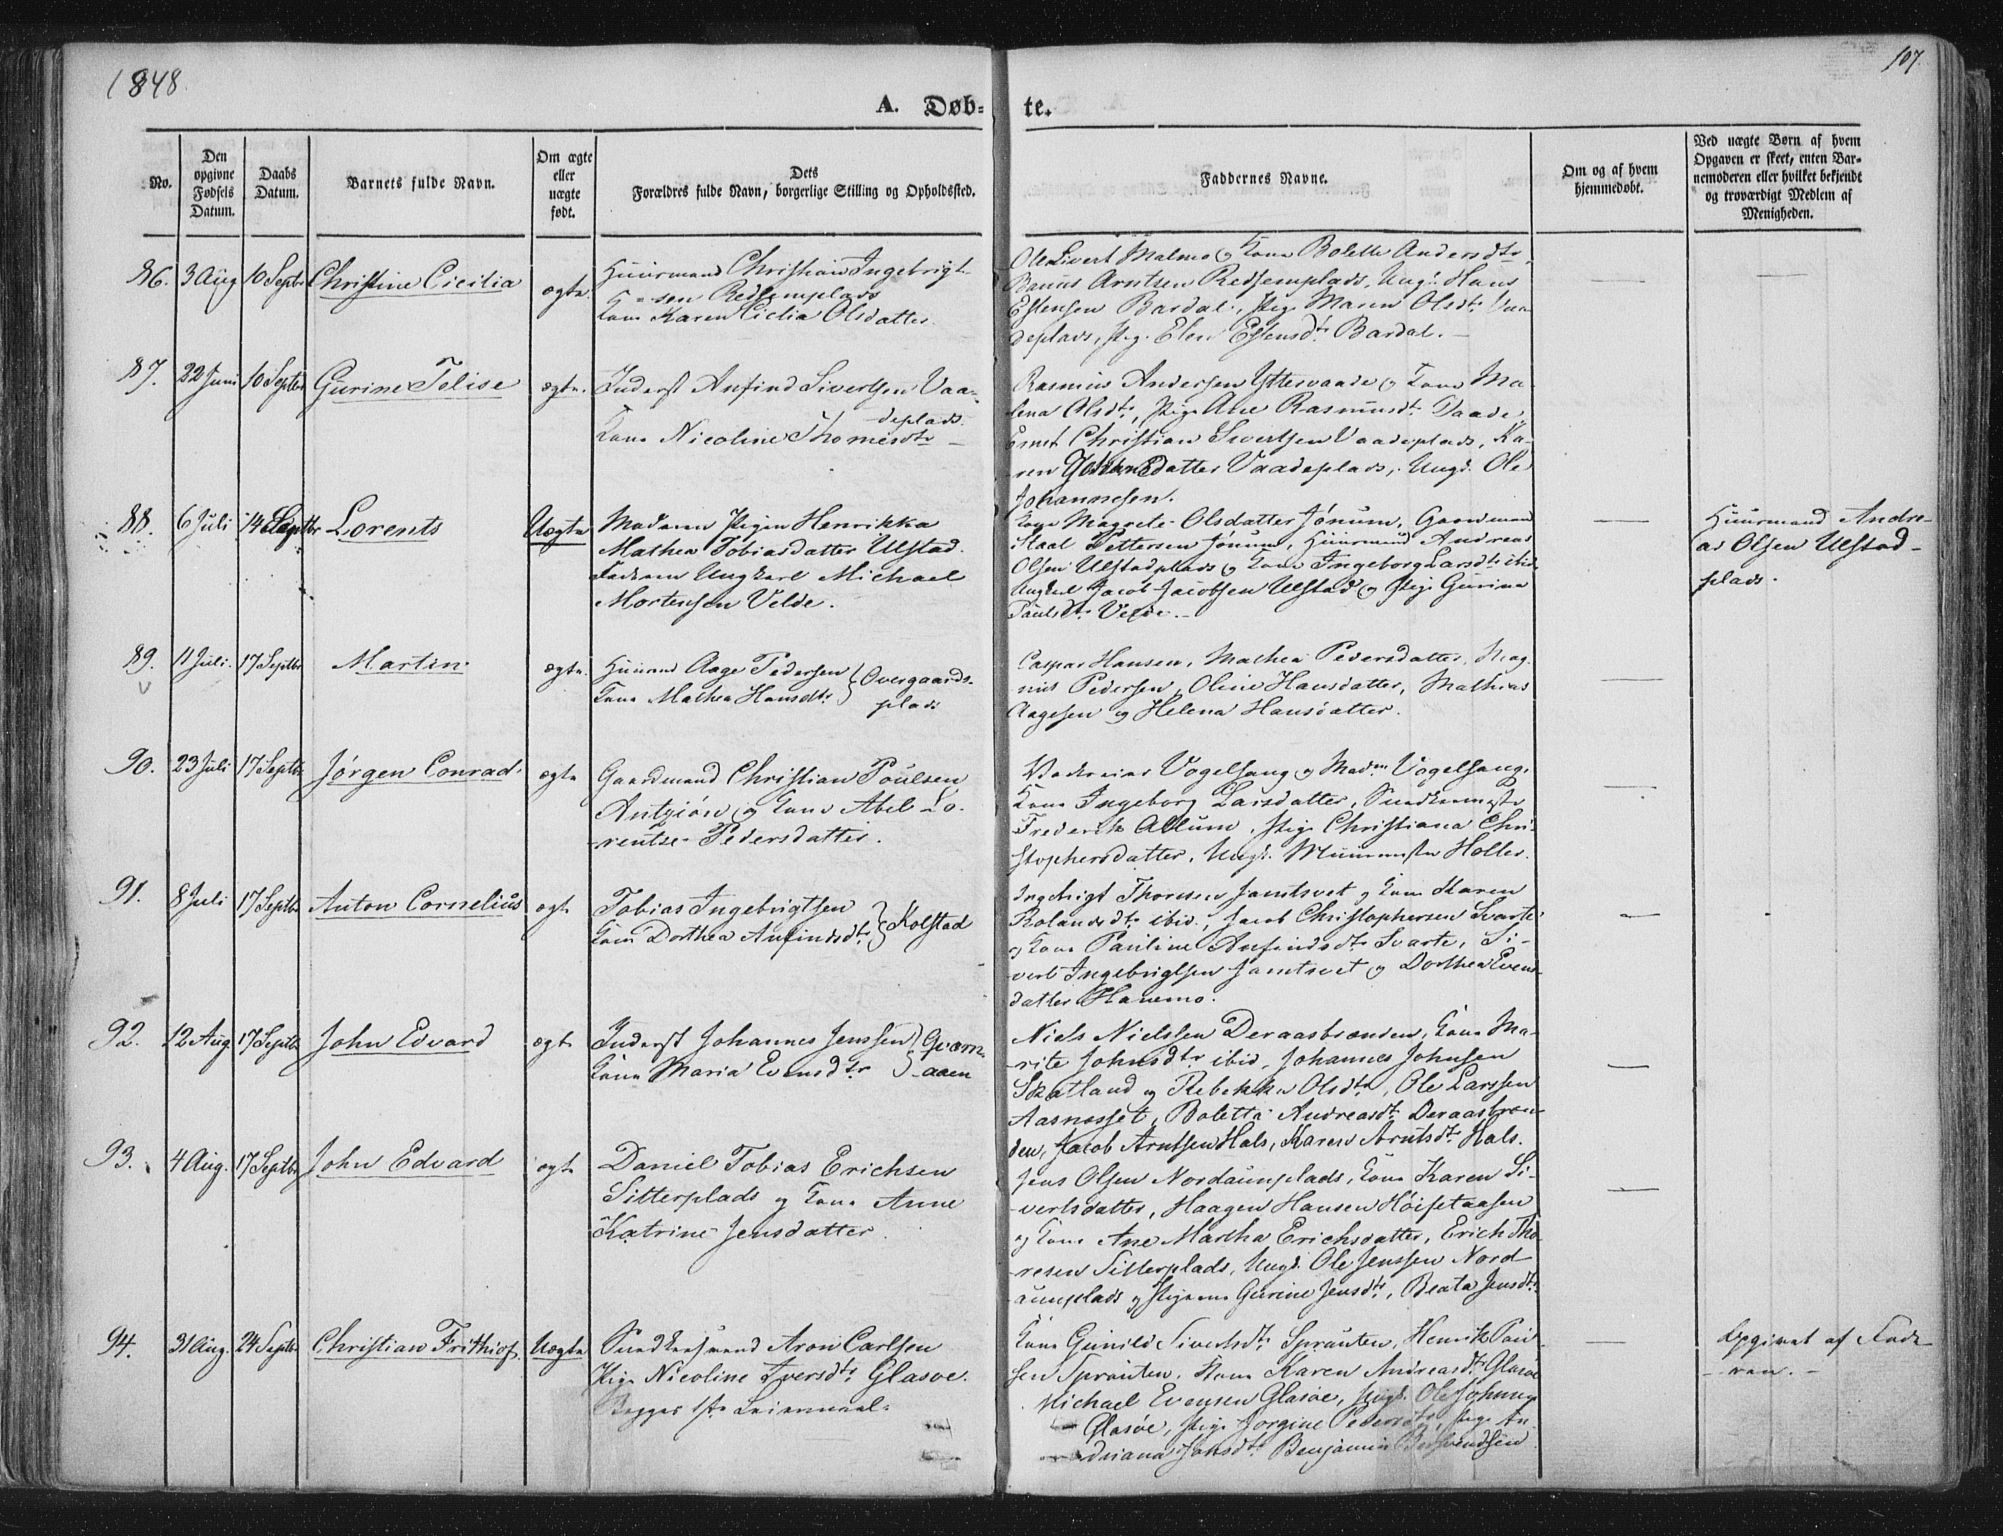 1848.
107.
A. Døb-
te.
No.
Den opgivne Fødsels Datum.
Daabs Datum.
Barnets fulde Navn.
Om ægte eller uægte født.
Dets Forældres fulde Navn, borgerlige Stilling og Opholdssted.
Faddernes Navne.
Om og af hvem hjemmedøbt.
Ved uægte Børn af hvem Opgaven er skeet, enten Barnemoderen eller hvilket bekjendt og troværdigt Medlem af Menigheden.
86. 3 Aug 10 Septbr Christine Cicilia ægte.
Huusmand Christian Ingebrigt-
sen Redsemplads
Kone Karen Cicilia Olsdatter.
Ole Sivert Malmo og Kone Bolette Andersdtr.
Arntsen Redsemplads, Ungk. Hans
Estensen Bardal, Pige Maren Olsdtr. Vaa-
deplads, Pige Elen Estensdtr Bardal.
87. 22 Juni 10 Septbr Gurine Telise ægte.
Inderst Anfind Sivertsen Vaa-
deplads
Kone Nicoline Thomesdtr
Rasmus Andersen Yttervaade og Kone Ma-
lena Olsdtr, Pige Ane Rasmusdtr Vaade,
Christian Sivertsen Vaadeplads, Ka-
ren datter Vaadeplads, Ungk. Ole
Johannesen.
88. 6 Juli 14 Septbr Lorents Uægte
Moderen Pigen Henrikka
Mathea Tobiasdatter Ulstad.
Faderen Ungkarl Michael
Mortensen Velde.
Kone Magrete Olsdatter Jønum, Gaardmand
Staal Pettersen Jønum, Huusmand Andreas
Olsen Ulstadplads og Kone Ingeborg Larsdtr ibid
Ungkarl Jacob Jacobsen Ulstad og Pige Gurina
Paulsdtr Velde.
Huusmand Andre-
as Olsen Ulstad-
plads.
89. 11 Juli. 17 Septbr Martin ægte.
Huusmand Aage Pedersen
Kone Mathea Hansdtr
Overgaards-
plads
Caspar Hansen, Mathea Pedersdatter, Mag-
nus Pedersen, Oline Hansdatter, Mathias
Aagesen og Helena Hansdatter.
90. 23 Juli 17 Septbr Jørgen Conrad ægte
Gaardmand Christian Poulsen
og Kone Abel Lo-
rentse Pedersdatter.
Vogelsang og Madm Vogelsang,
Kone Ingeborg Larsdatter,
Frederik Allum, Pige Christiana Chri-
stophersdatter, Ungk. Holler.
91. 8 Juli 17 Septbr Anton Cornelius ægte
Tobias Ingebrigtsen
Kone Dorthea Anfindsdtr
Kolstad
Ingebrigt Thoresen Jamtsvet og Kone Karen
Rolandsdtr ibid., Jacob Christophersen Svarte
og Kone Pauline Anfindsdtr Svarte, Si-
vert Ingebrigtsen Jamtsvet og Dorthea Evens-
datter Hanemo.
92. 12 Aug 17 Septbr John Edvard ægte
Inderst Johannes Jenssen
Kone Maria Evensdtr
Qvarn-
aaen
Niels Nielssen Deraasbrænden, Kone Ma-
rite Johnsdtr ibid, Johannes Johnsen
Skatland og Rebekka Olsdtr, Ole Larssen
Aasnesset, Boletta Andreasdtr Deraasbræn-
den, Jacob Arntsen Hals, Karen Arntsdtr Hals.
93. 4 Aug. 17 Septbr John Edvard ægte
Daniel Tobias Erichsen
Sitterplads og Kone Anne
Katrine Jensdatter.
Jens Olsen Nordaunplads, Kone Karen Si-
vertsdatter, Haagen Hansen Høisetaasen
og Kone Ane Martha Erichsdatter, Erich Tho-
resen Sitterplads, Ungk. Ole Jenssen Nord-
aunplads og Pigerne Gurine Jensdtr, Beata Jensdtr.
94. 31 Aug. 24 Septbr Christian Frithiof Uægte
Aron Carlsen
Pige Nicoline Iversdtr Glasøe.
Begges 1ste Leiermaal.
Kone Gunild Sivertsdtr Sprauten, Henrik Paul-
sen Sprauten, Kone Karen Andreasdtr Glasøe
Michael Evensen Glasøe, Ungk. Ole
Glasøe, Pige Jorgine Pedersdtr, Pige An-
driana Benjamin
Opgivet af Fade-
ren.